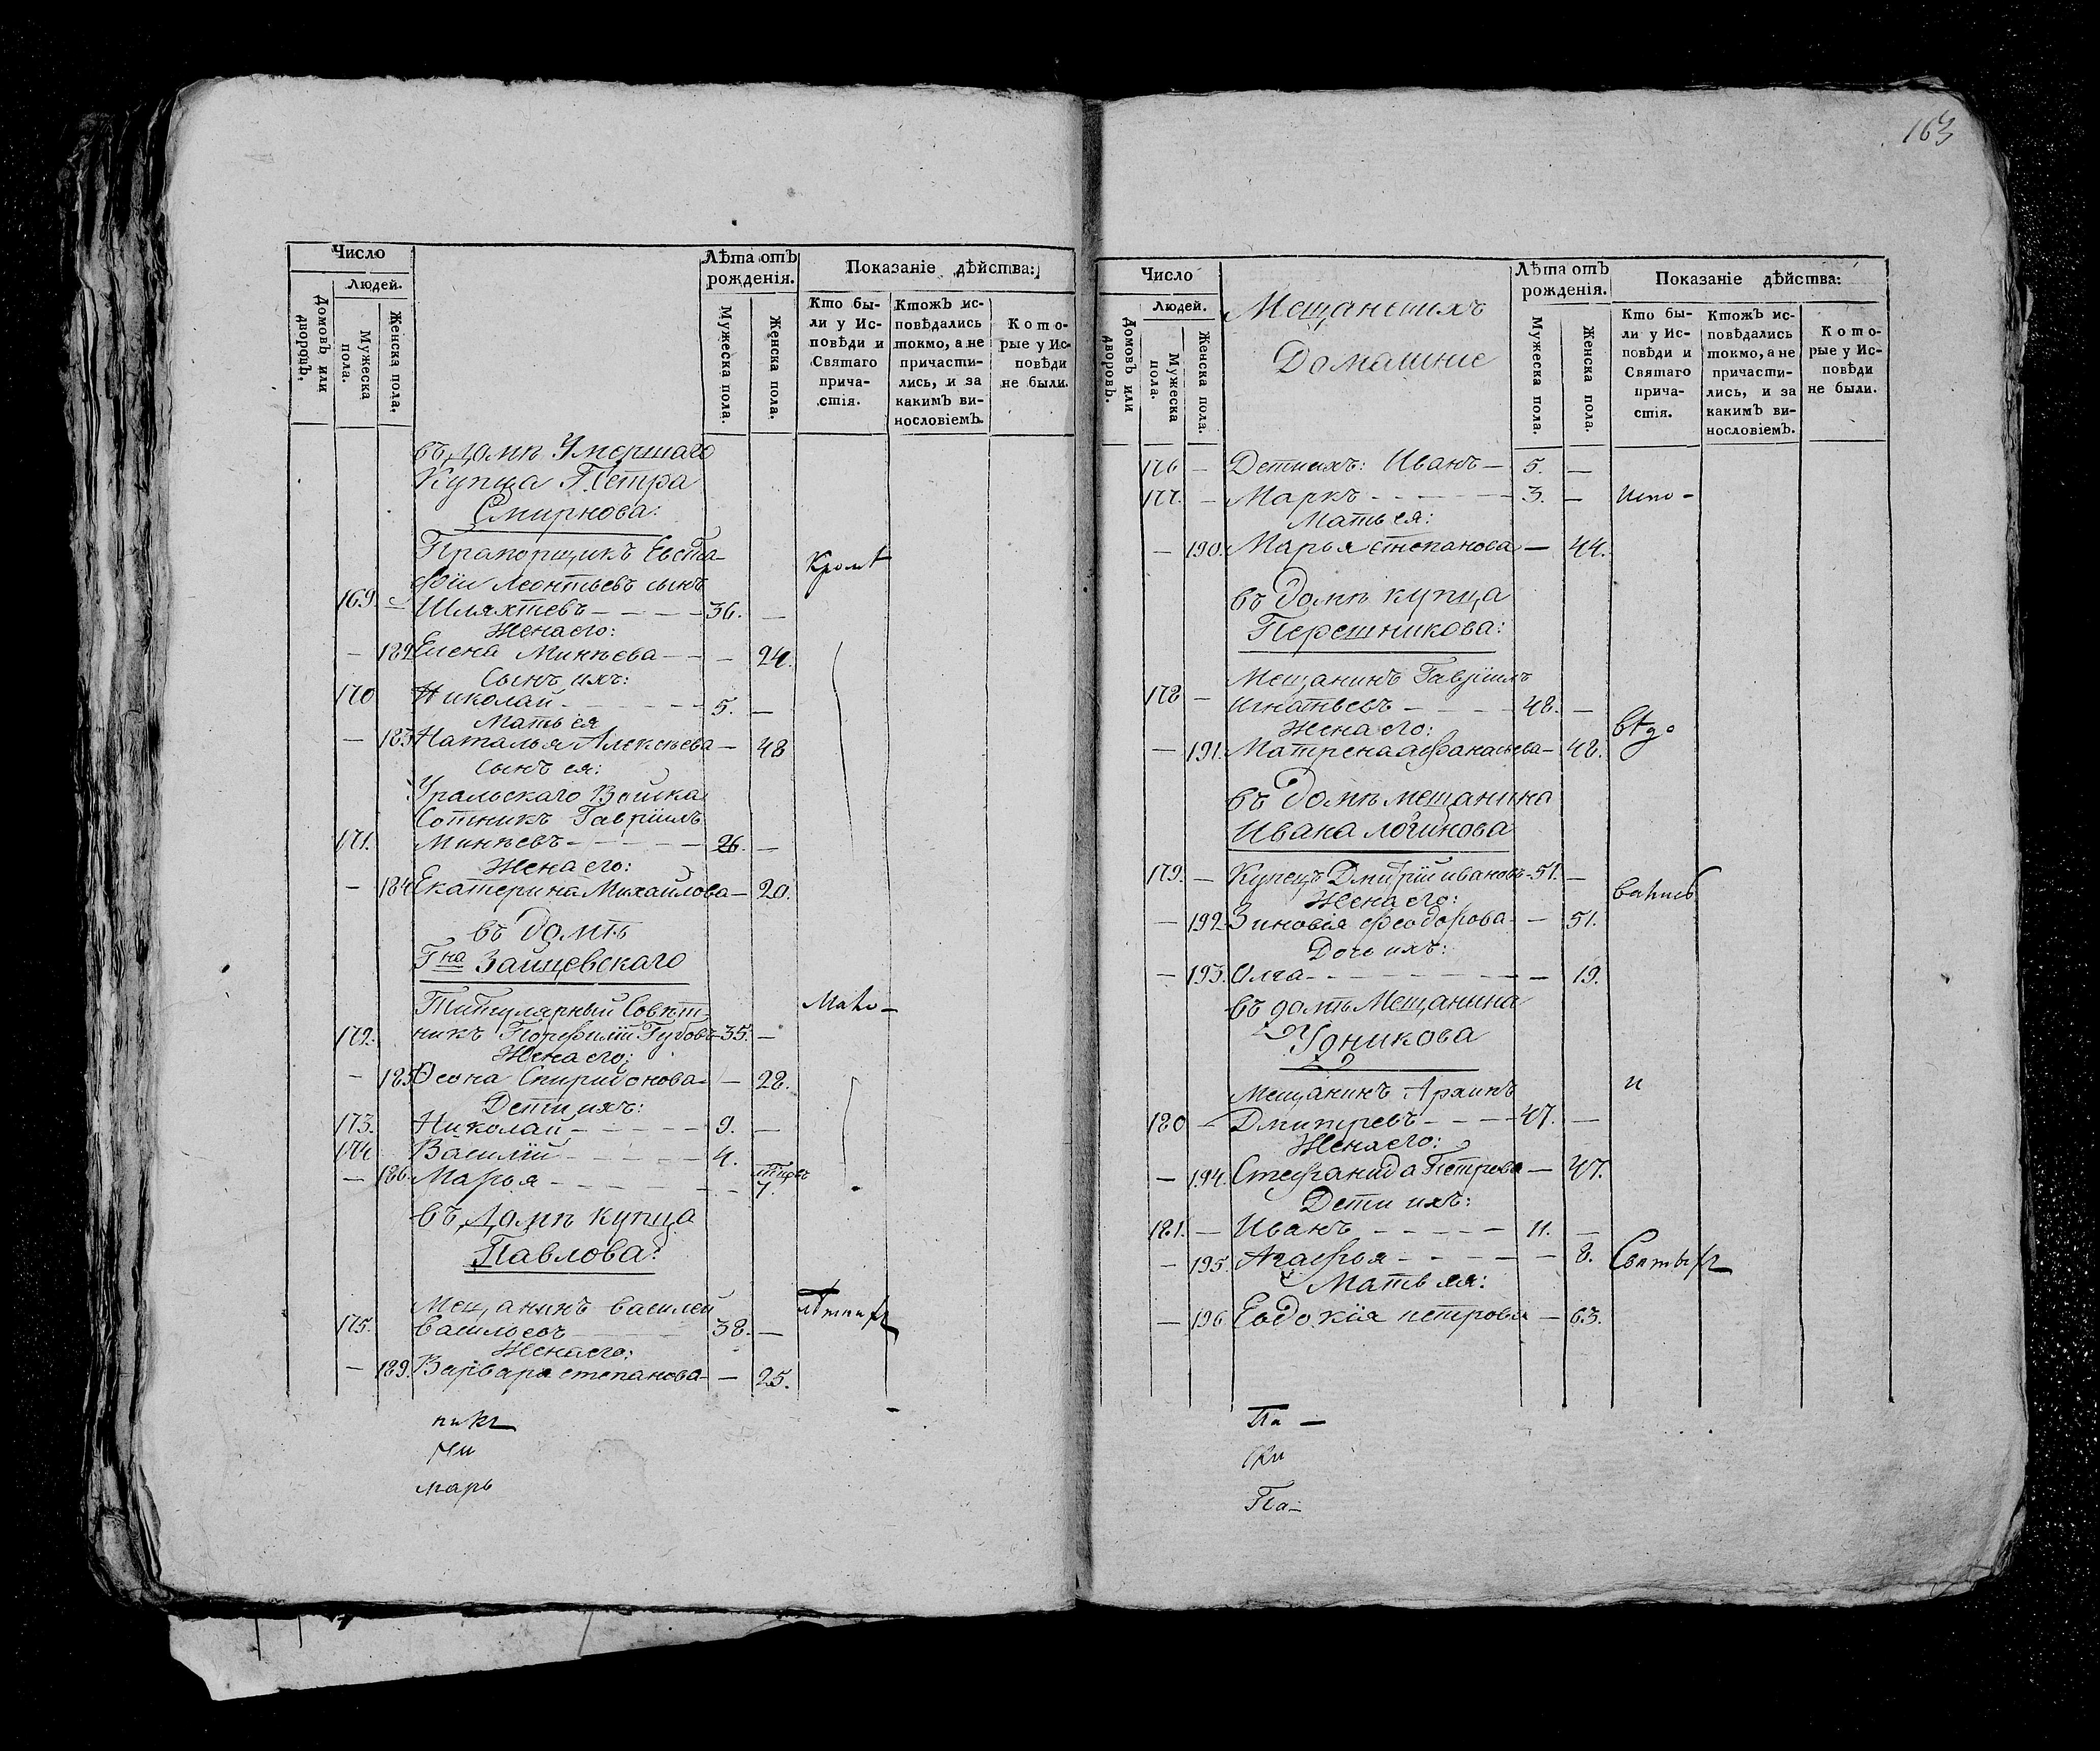 Число
Людей.
Домовъ или дворовъ.
Мужеска пола.
Женска пола.
Лѣта отъ рожденія.
Мужеска пола.
Женска пола.
Показаніе дѣйства:
Кто бы-
ли у Ис-
повѣди и
Святаго
прича-
стія.
Ктожъ ис-
повѣдались
токмо, а не
причасти-
лись, и за
какимъ ви-
нословіемъ.
Кото-
рые у Ис-
повѣди
не были.
въ домѣ Умершаго
Купца Петра
Смирнова:
Прапорщикъ Евста-
фіи Леонтьевъ сынъ
169. – Шляхтевъ – 36. –
Жена его:
– Елена Минѣева – 24.
Сынъ ихъ:
170 Николай – 5. –
Мать ея
– 183 Наталья Алексѣева – 48
Сынъ ея:
Уральскаго Войска
Сотникъ Гавріилъ
171. Минѣевъ – 26. –
Жена его:
– 184 Екатерина Михаилова – 20.
въ домѣ
Гна Заицевскаго
Титулярный Совѣт-
172. никъ Порфилій Губовъ – 35. –
Жена его:
– 185 Спиридонова – 28.
Дети ихъ:
173. Николай – 9. –
174 Василій – 4.
– 186. Марья – 7.
въ домѣ купца
Павлова:
Мещанинъ Василей
175. Васильевъ – 38. –
Жена его:
– 189. Варвара степанова – 25.
марь
163
Число
Людей.
Домовъ или дворовъ.
Мужеска пола.
Женска пола.
Мещанскихъ
Домашніе
Лѣта отъ рожденія.
Мужеска пола.
Женска пола.
Показаніе дѣйства:
Кто бы-
ли у Ис-
повѣди и
Святаго
прича-
стія.
Ктожъ ис-
повѣдались
токмо, а не
причасти-
лись, и за
какимъ ви-
нословіемъ.
Кото-
рые у Ис-
повѣди
не были.
176 – Иванъ – 5. –
177. – Маркъ – 3. –
Мать ея:
– 190. Марья степанова – 44.
въ домѣ купца
Перешникова:
Мещанинъ Гавріилъ
178 – Игнатьевъ – 48. –
Жена его:
– 191. Матрена афанасьева – 48.
въ домѣ мещанина
Ивана логинова
179. – Купецъ Дмитрій ивановъ – 51. –
Жена его:
– 192 Зиновія феодорова – 51.
Дочь ихъ:
– 193. Олга – 19.
въ домѣ Мещанина
Удникова
Мещанинъ Архипъ
180 – Дмитревъ – 47. –
Жена его:
– 194. Стефанида Петрова – 47.
Дети ихъ:
181. – Иванъ – 11. –
– 195. Агафья – 8.
Мать ея:
– 196 Евдокія петрова – 63.